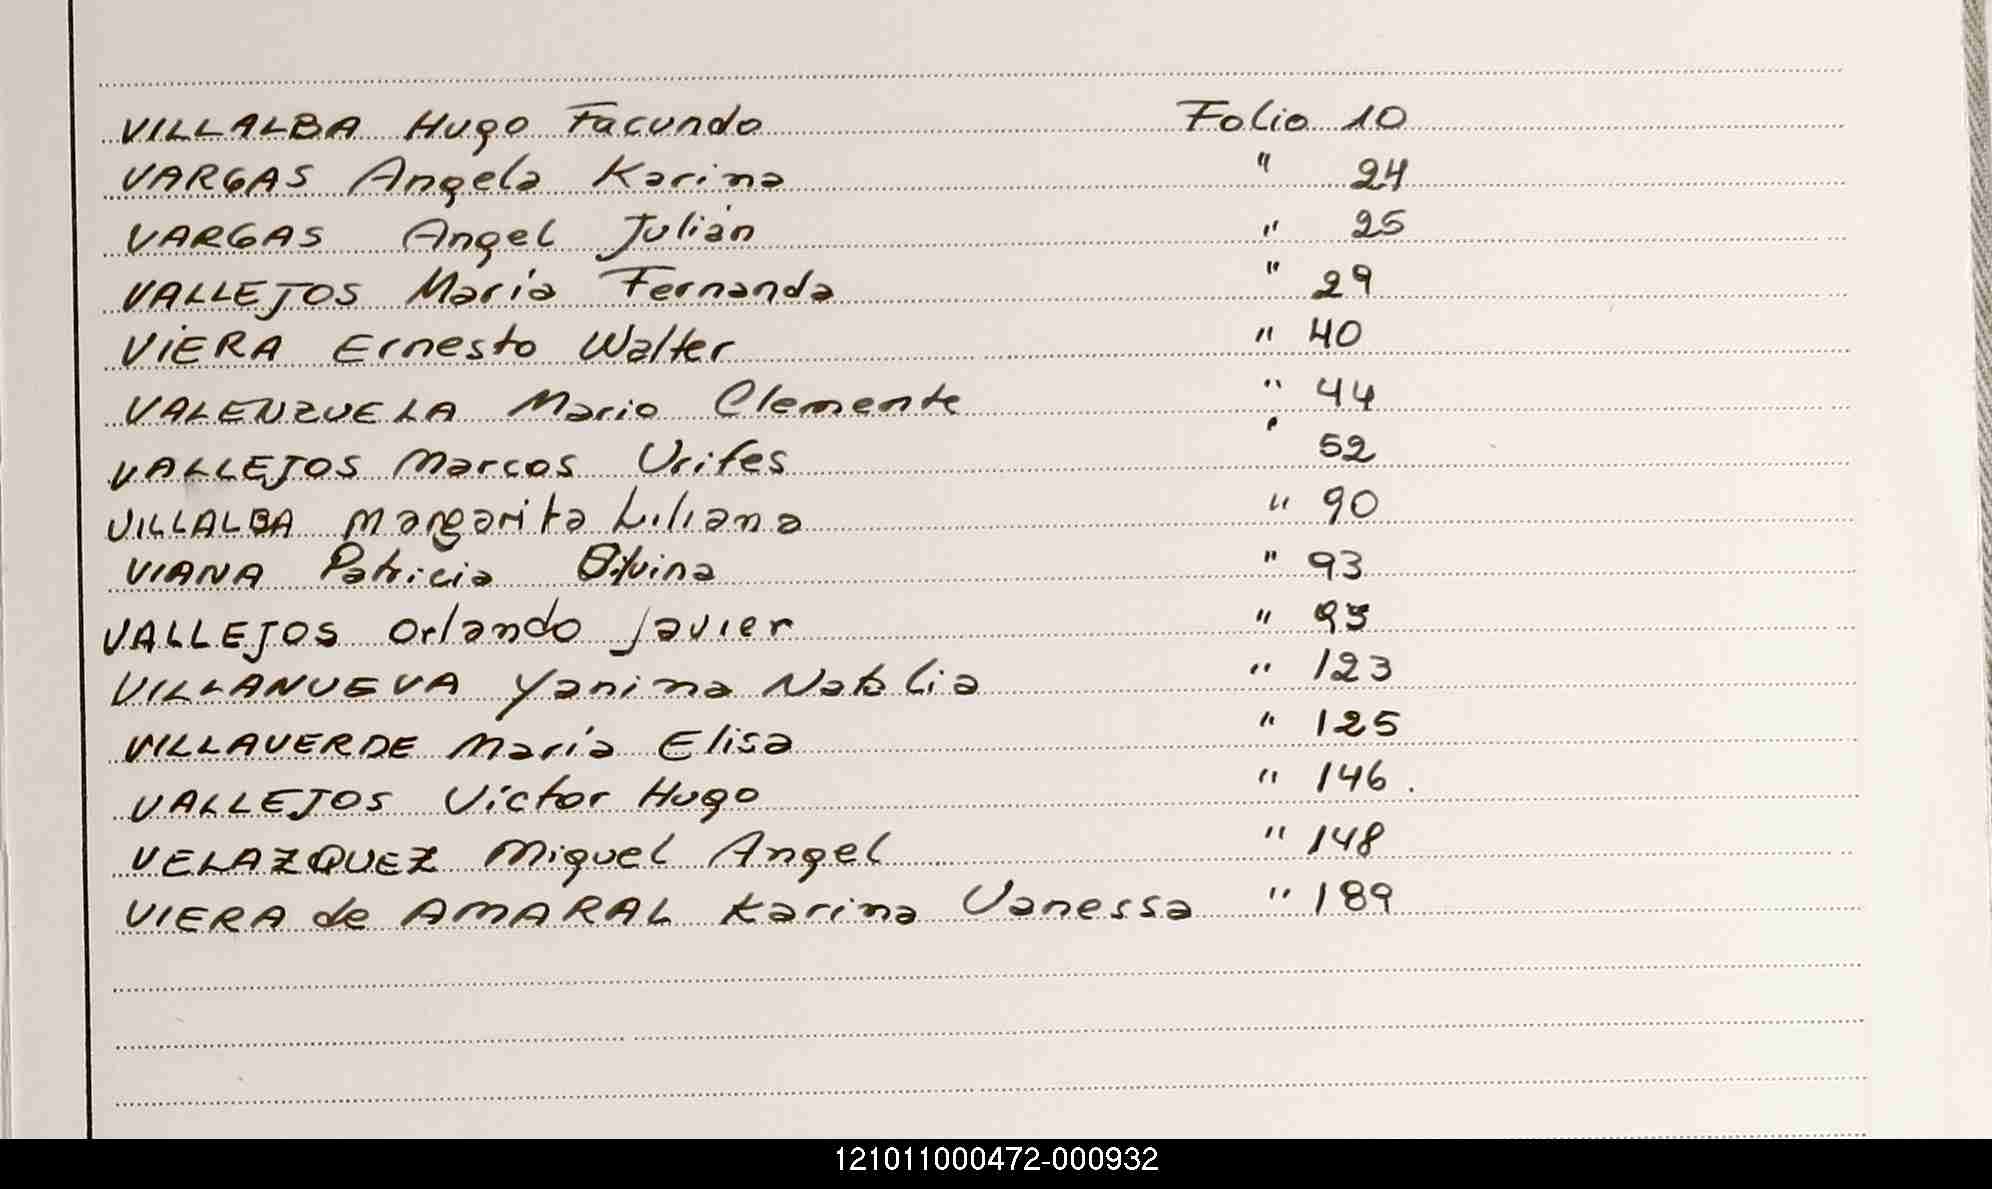 VILLALBA Hugo Facundo Folio 10
VARGAS Angela Karina " 24
VARGAS Angel Julián " 25
VALLEJOS María Fernanda " 29
VIERA Ernesto Walter " 40
VALENZUELA Mario Clemente " 44
VALLEJOS Marcos Urifes " 52
VILLALBA Margarita Liliana " 90
VIANA Patricia Silvina " 93
VALLEJOS Orlando Javier "
VILLANUEVA Yanina Natalia " 123
VILLAVERDE María Elisa " 125
VALLEJOS Víctor Hugo " 146.
VELAZQUEZ Miguel Angel " 148
VIERA de AMARAL Karina Vanessa " 189
121011000472-000932